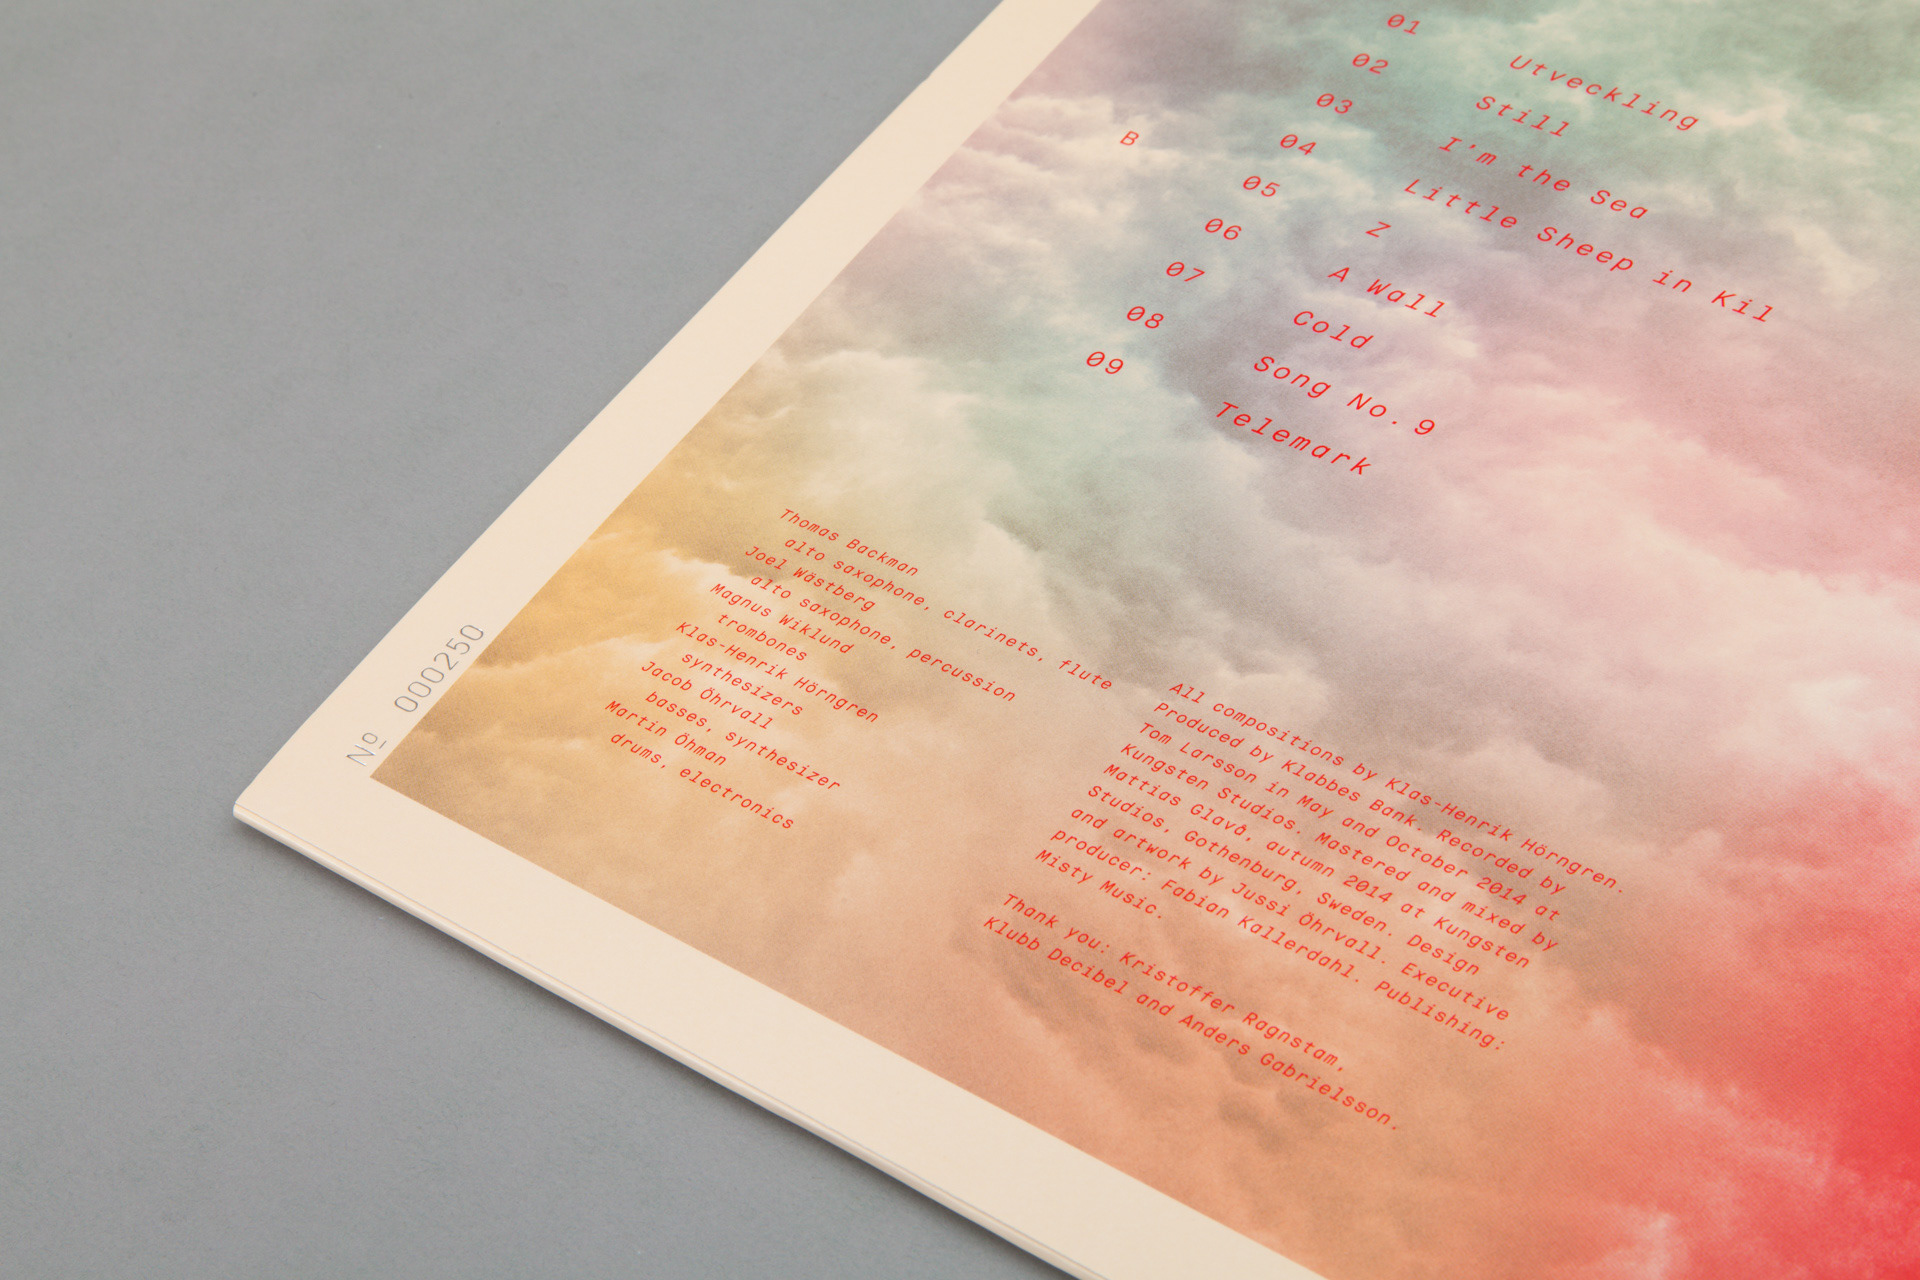 01 Utveckling
02 Still
03 I'm the Sea
04 Little Sheep in Kil
B 05 Z
06 A Wall
07 Cold
08 Song No.9
09 Telemark
Thomas Backman
alto saxophone, clarinets, flute
Joel Wästberg
alto saxophone, percussion
Magnus Wiklund
trombones
Klas-Henrik Hörngren
synthesizers
Jacob Öhrvall
basses, synthesizer
Martin Öhman
drums, electronics
All compositions by Klas-Henrik Hörngren.
Produced by Klabbes Bank. Recorded by
Tom Larsson in May and October 2014 at
Kungsten Studios. Mastered and mixed by
Mattias Glavå, autumn 2014 at Kungsten
Studios, Gothenburg, Sweden. Design
and artwork by Jussi Öhrvall. Executive
producer: Fabian Kallerdahl. Publishing:
Misty Music.
Thank you: Kristoffer Ragnstam,
Klubb Decibel and Anders Gabrielsson.
Nº 000250